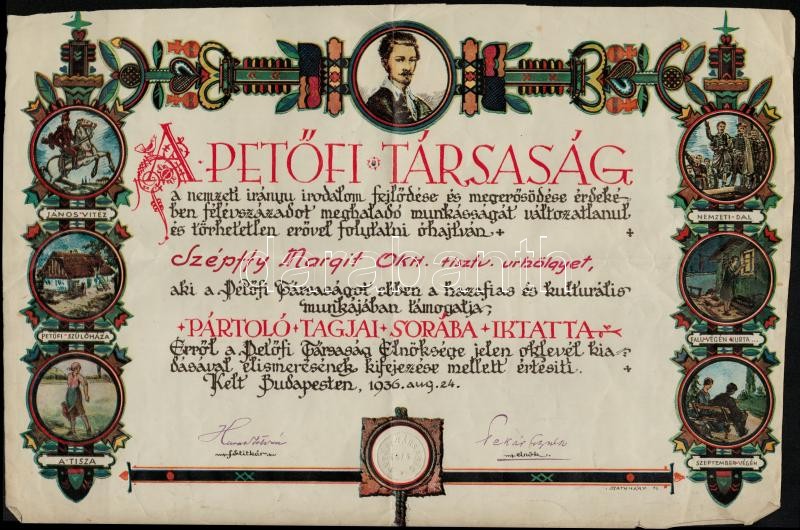 A PETŐFI TÁRSASÁG
a nemzeti irányu irodalom fejlődése és megerősödése érdeké-
ben félévszázadot meghaladó munkásságát változatlanul
és törhetetlen erővel folytatni óhajtván.
Szépffy Margit Okit. tisztv. urhölgyet,
aki a Petőfi Társaságot ebben a hazafias és kulturális
munkájában támogatja,
PÁRTOLÓ TAGJAI SORÁBA IKTATTA
Erről a Petőfi Társaság Elnöksége jelen oklevél kia-
dásával elismerésének kifejezése mellett értesíti.
Kelt Budapesten, 1936. aug. 24.
főtitkár
elnök
JÁNOS VITÉZ
PETŐFI SZÜLŐHÁZA
A TISZA
NEMZETI DAL
FALU VÉGÉN KURTA...
SZEPTEMBER VÉGÉN
darabanth